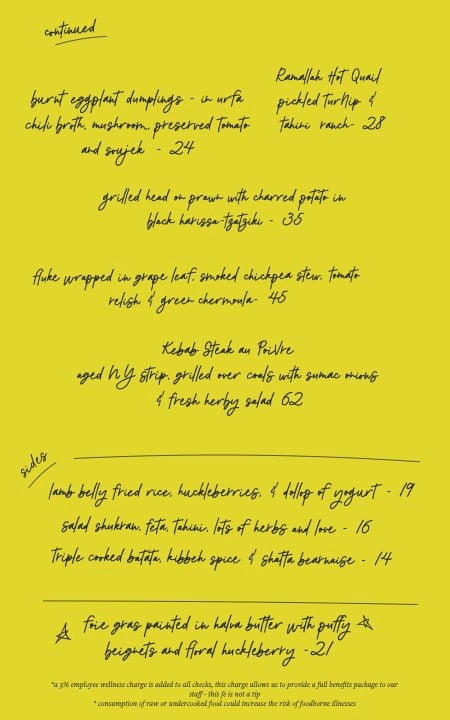 continued
burnt eggplant dumplings - in urfa
chili broth, mushroom, preserved tomato
and soujek - 24
Ramallah Hot Quail
pickled turnip &
tahini ranch- 28
grilled head on prawn with charred potato in
black harissa-tzatziki - 35
fluke wrapped in grape leaf, smoked chickpea stew, tomato
relish & green chermoula- 45
Kebab Steak au PoiVre
aged NY strip, grilled over coals with sumac onions
& fresh herby salad 62
sides
lamb belly fried rice, huckleberries, & dollop of yogurt - 19
salad shukran, feta, tahini, lots of herbs and love - 16
Triple cooked batata, kibbeh spice & shatta bearnaise - 14
foie gras painted in halva butter with puffy
beignets and floral huckleberry -21
*a 3% employee wellness charge is added to all checks, this charge allows us to provide a full benefits package to our
staff - this fe is not a tip
* consumption of raw or undercooked food could increase the risk of foodborne illnesses